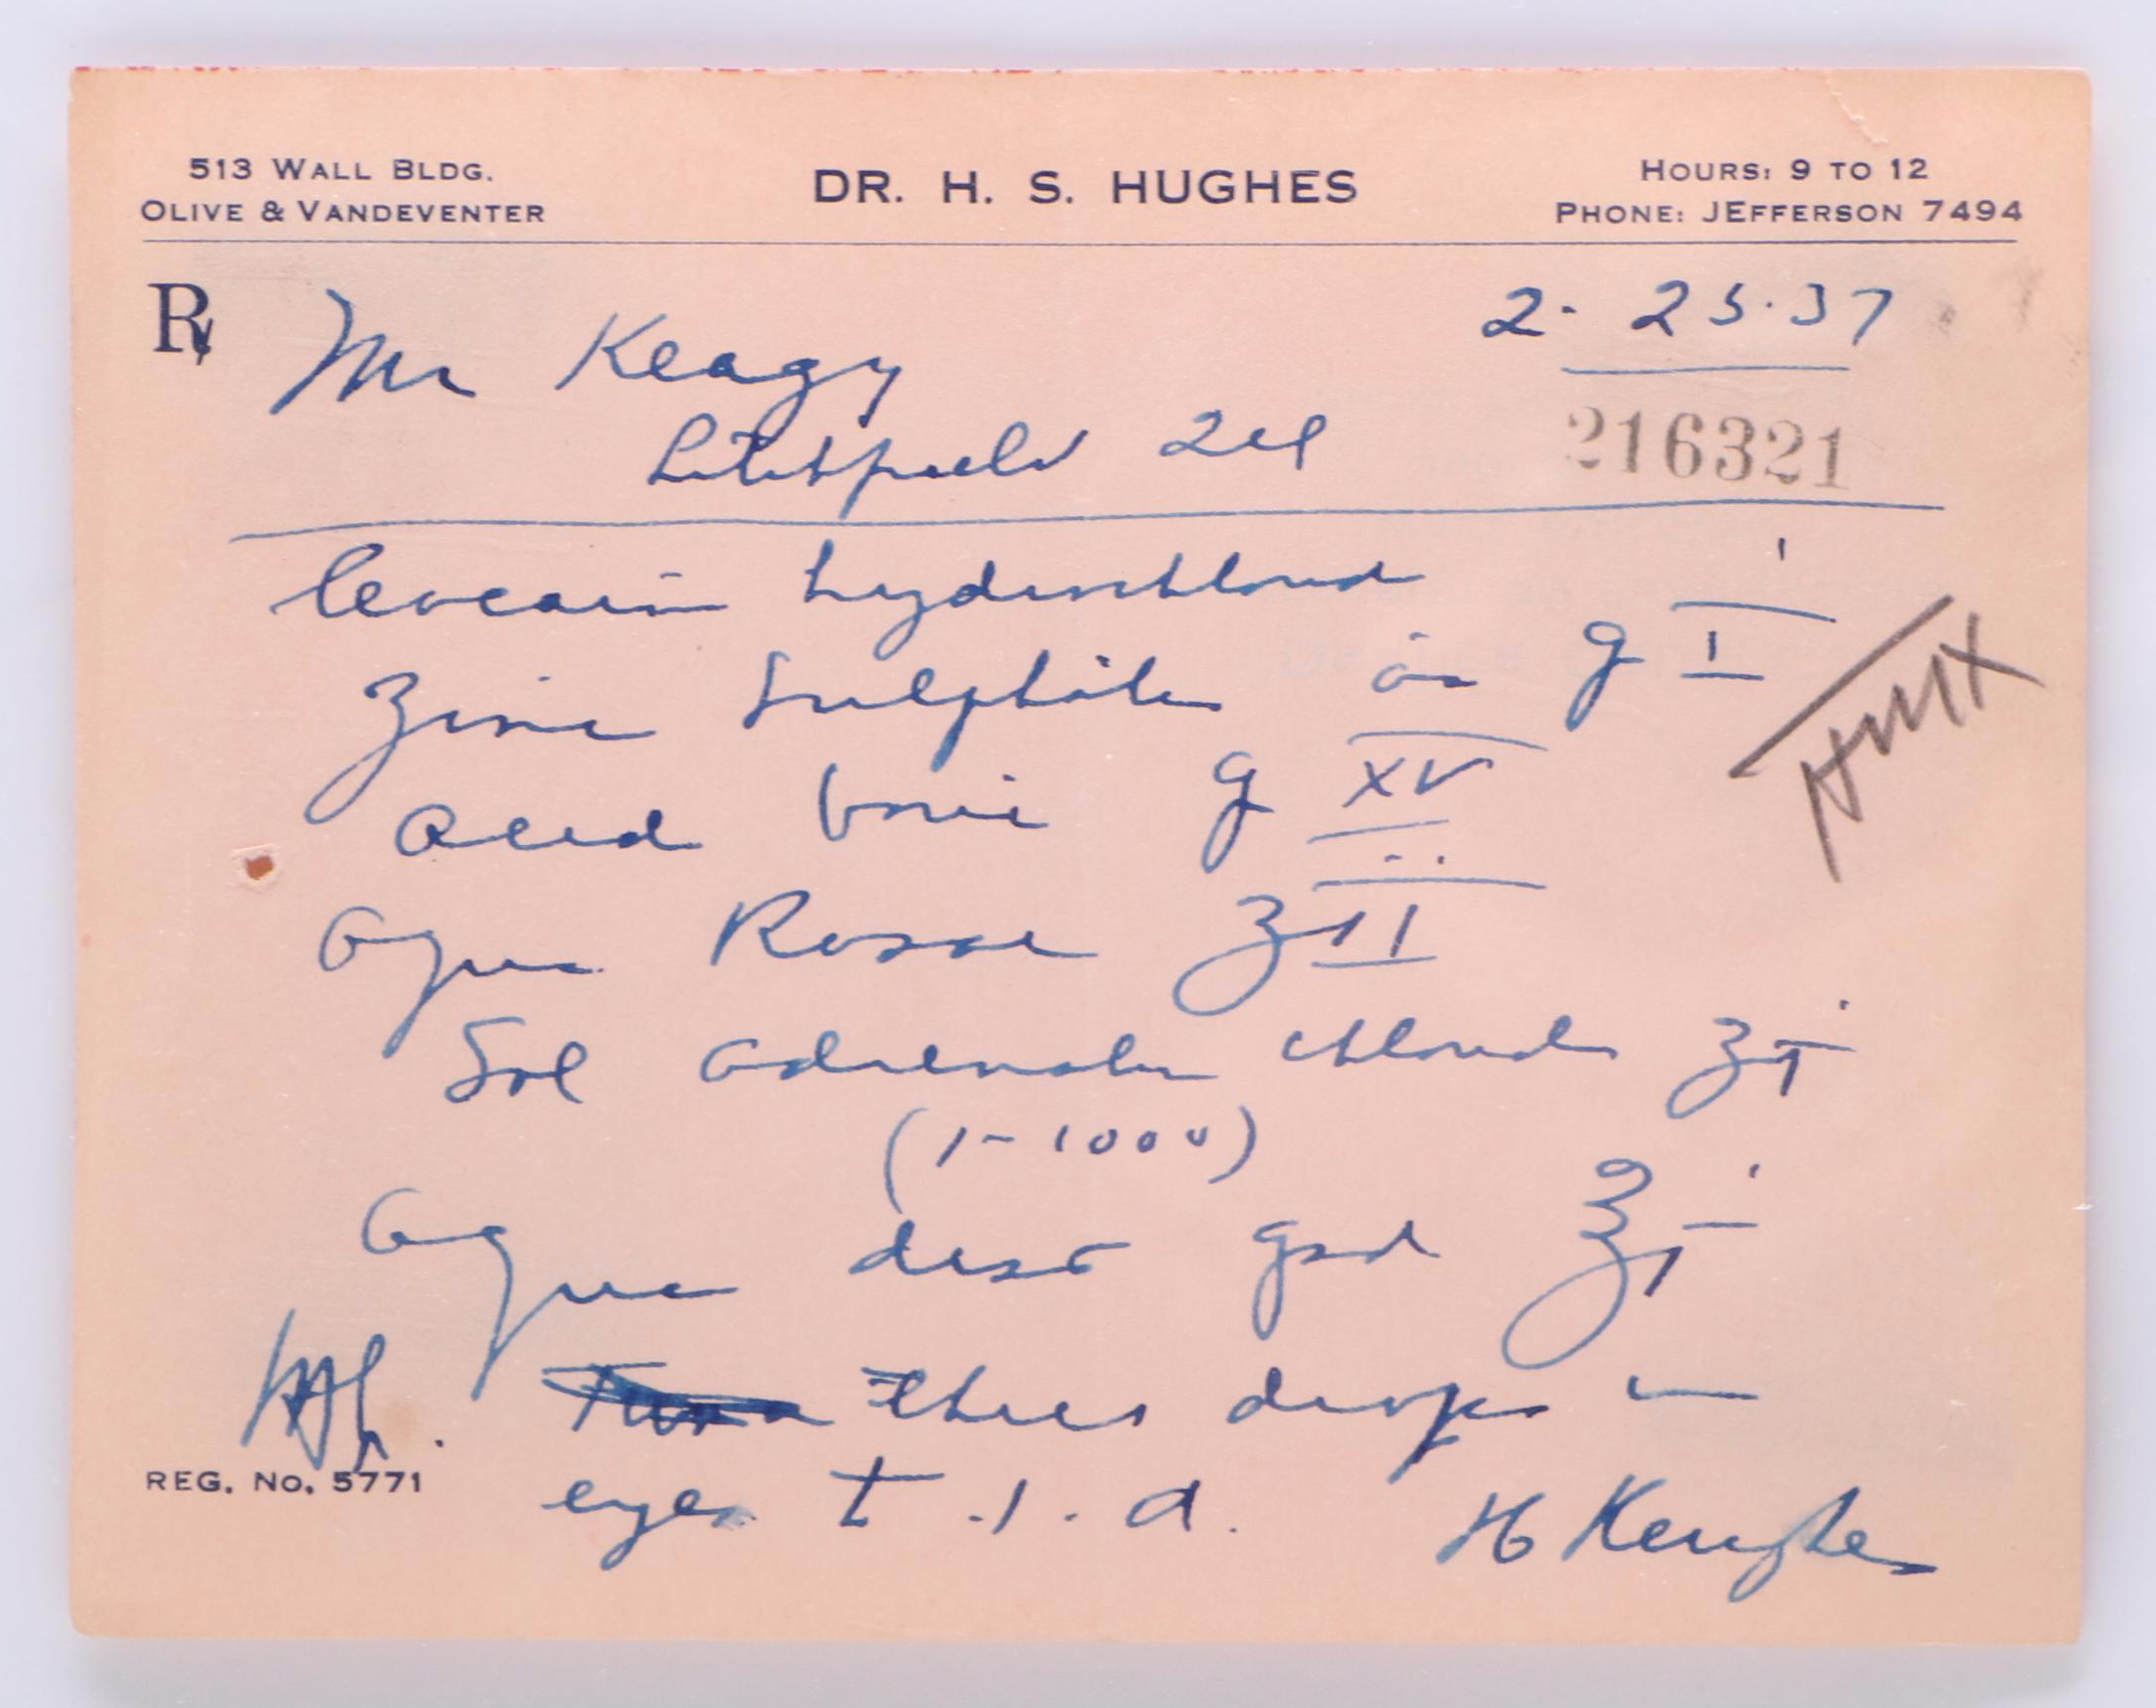 513 WALL BLDG.
OLIVE & VANDEVENTER
DR. H. S. HUGHES
HOURS: 9 TO 12
PHONE: JEFFERSON 7494
Rx Mr Keagy 2-25-37
Litchfield Ill
216321
Cocain hydrochlorid
Zinci Sulphate aa g I
Acid boric g XV
Aqua Rosae ʒ II
Sol adrenalin chloride ʒ i
(1-1000)
Aqua dest qsd ℥ i
three drops in
eyes t.i.d.
H Hughes
REG. NO. 5771